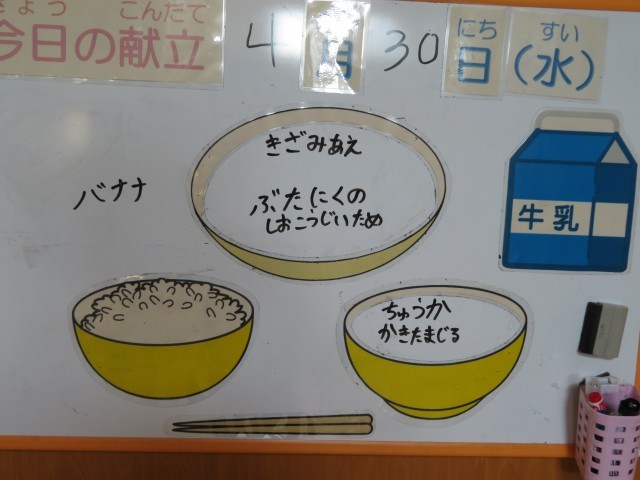 きょう こんだて
今日の献立
4月30日(水)
にち すい
きざみあえ
ぶたにくの
しおこうじいため
バナナ
牛乳
ちゅうか
かきたまじる